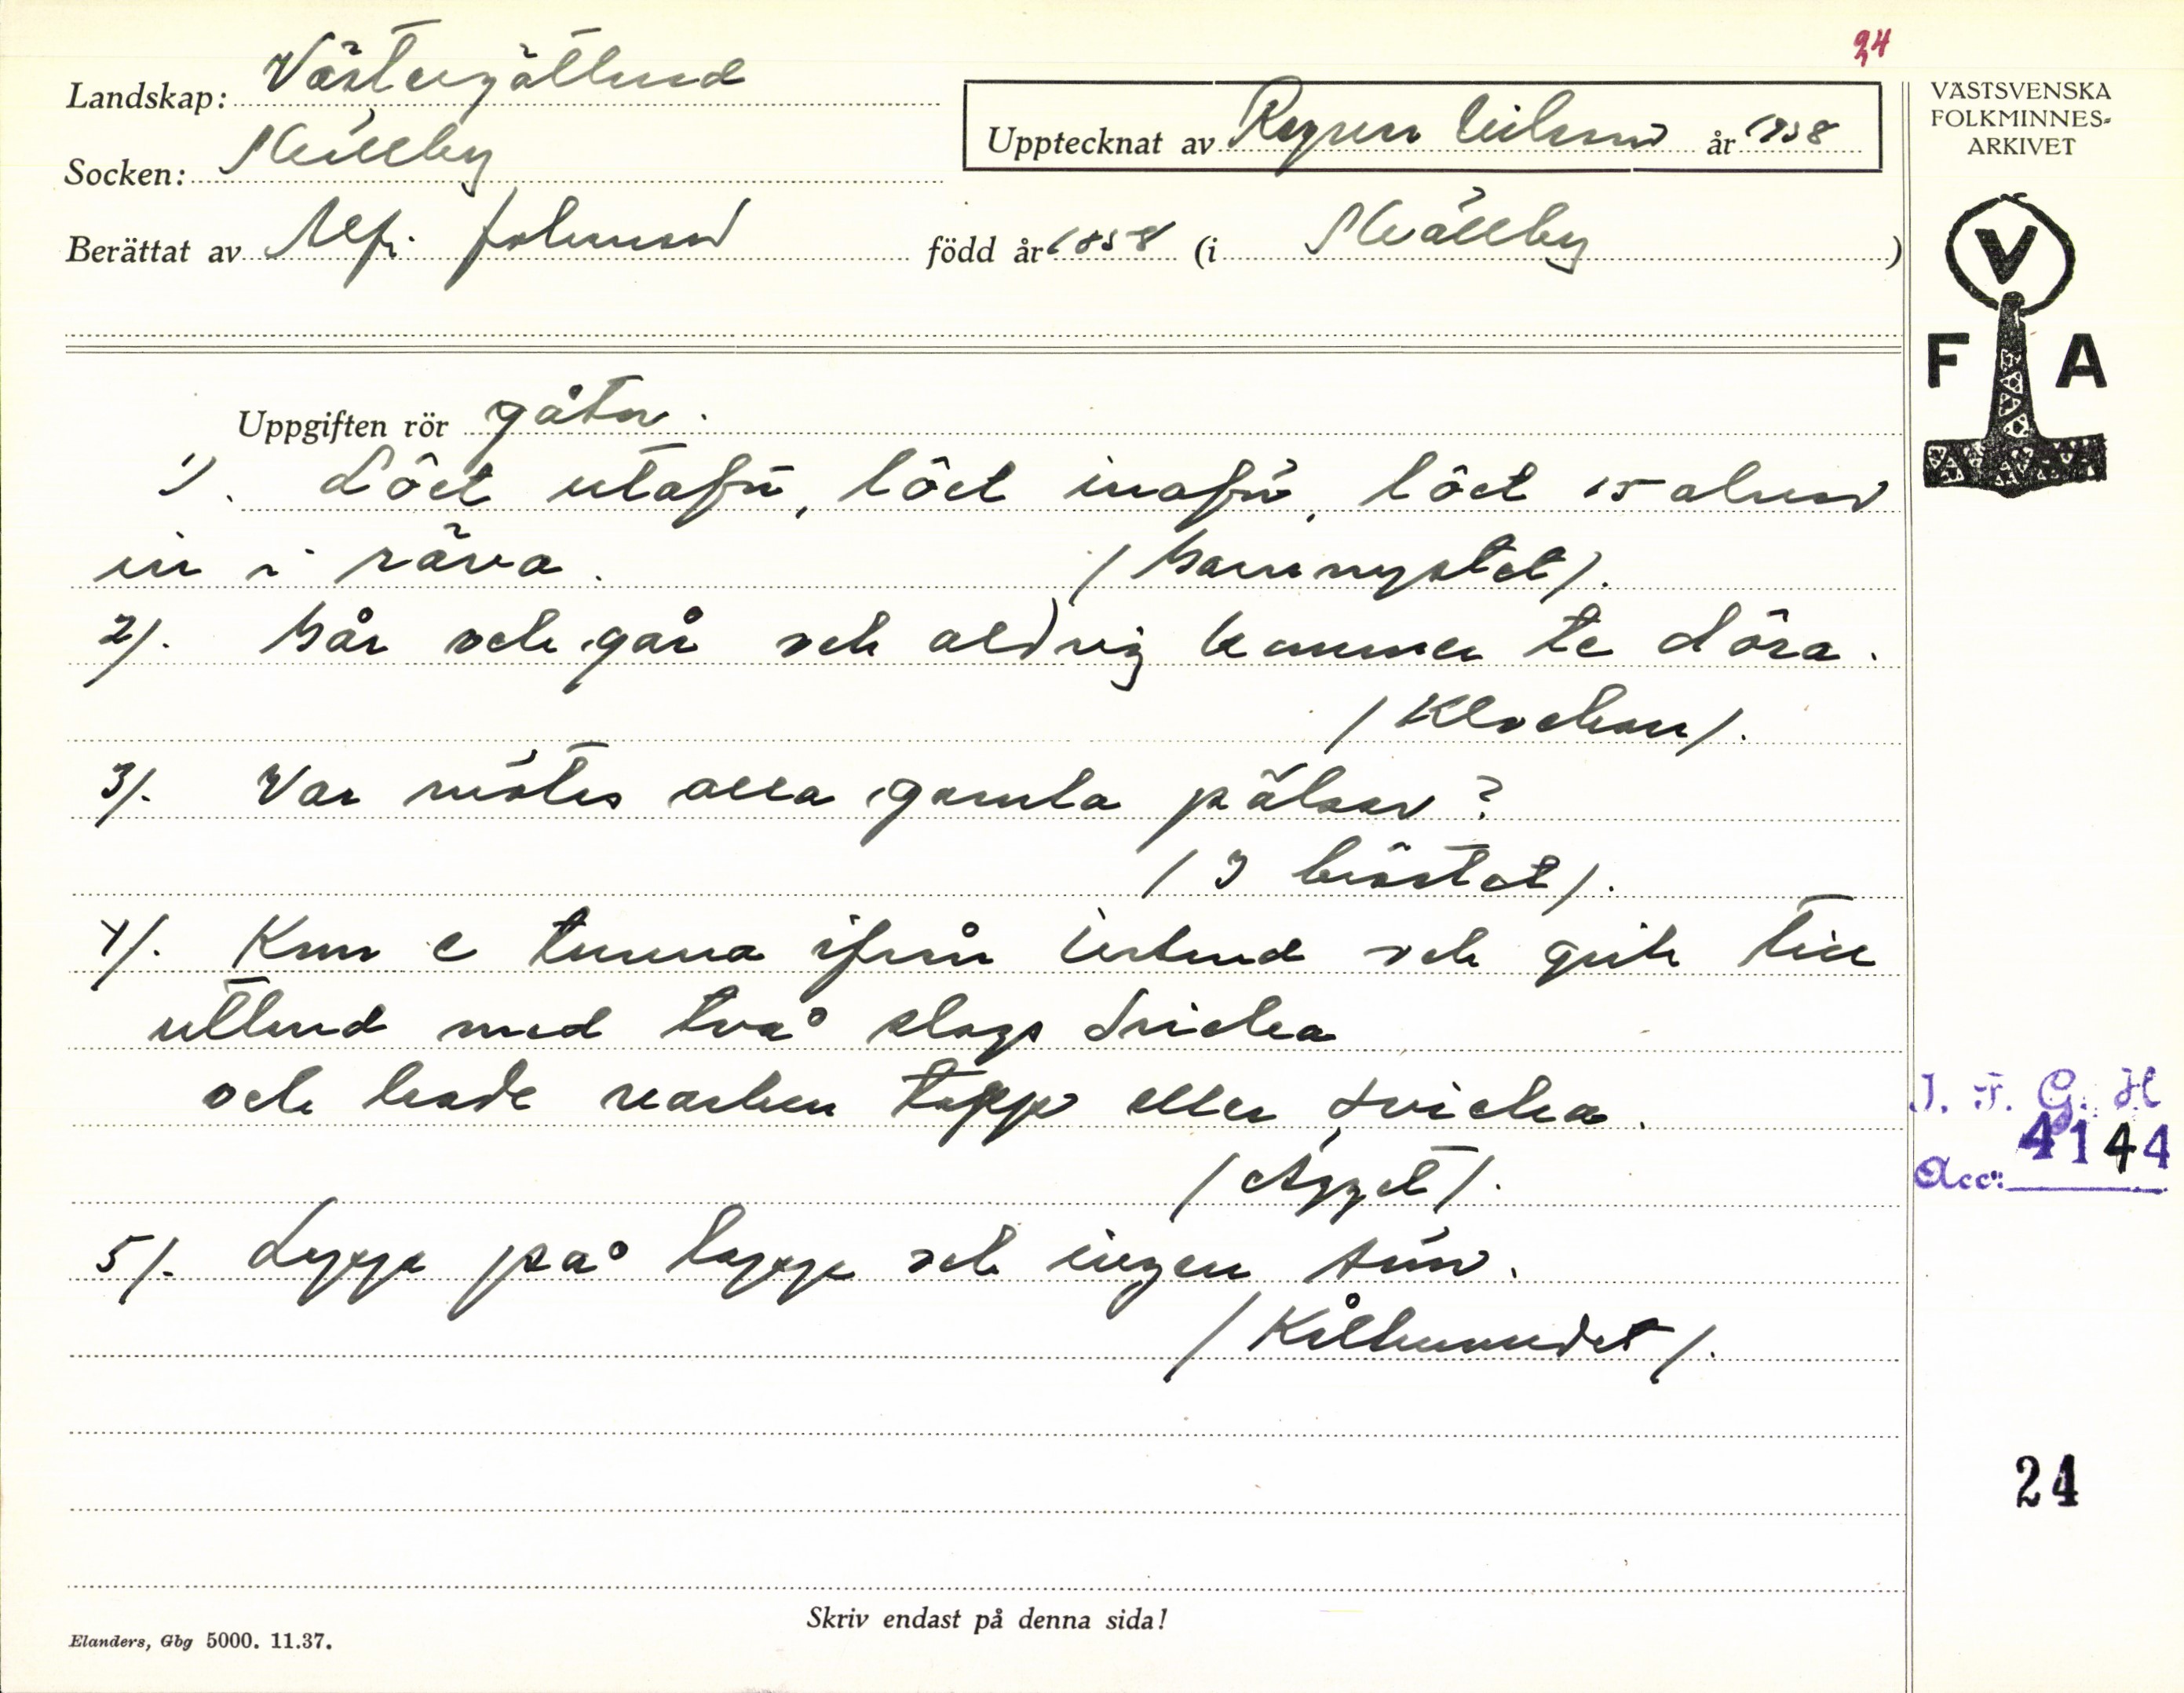 24
Landskap: Västergötland
Socken: Skällby
Upptecknat av Ragnar Nilsson år 1938
VÄSTSVENSKA
FOLKMINNES-
ARKIVET
Berättat av Alfr. Johansson född år 1858 (i Skällby)
V
F A
Uppgiften rör gåtor.
1). Lôet utafö, lôet inafö, lôet 15 alnar
in i räva. (Garnnystet).
2). Går och går och aldrig kommer te döra.
(Klockan).
3). Var mötes alla gamla pälsar?
(I böstet).
4). Kom e tunna ifrån Island och gick till
utland med två slags dricka
och hade varken tapp eller svicka.
(Ägget).
5). Lapp på lapp och ingen söm.
(Kålhuvudet).
I. F. G. H
Acc: 4144
24
Skriv endast på denna sida!
Elanders, Gbg 5000. 11.37.